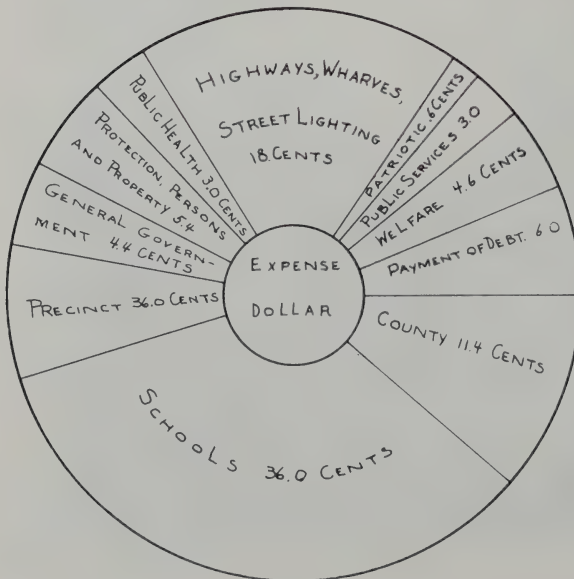 HIGHWAYS, WHARVES,
STREET LIGHTING
18. CENTS
PATRIOTIC .6 CENTS
PUBLIC SERVICES 3.0
WELFARE 4.6 CENTS
PAYMENT OF DEBT. 6.0
COUNTY 11.4 CENTS
SCHOOLS 36.0 CENTS
PRECINCT 36.0 CENTS
GENERAL GOVERN-
MENT 4.4 CENTS
PROTECTION, PERSONS
AND PROPERTY 5.4
PUBLIC HEALTH 3.0 CENTS
EXPENSE
DOLLAR